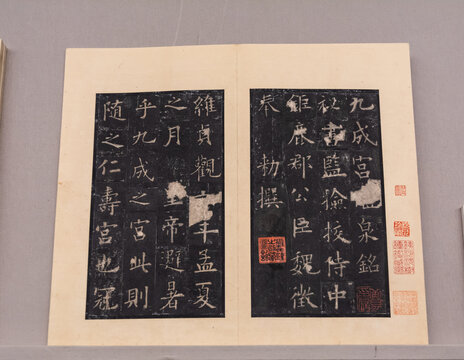 九成宮泉銘
秘書監撿挍侍中
鉅鹿郡公臣魏徵
奉勑撰
維貞觀年孟夏
之月皇帝避暑
乎九成之宮此則
隨之仁壽宮也冠